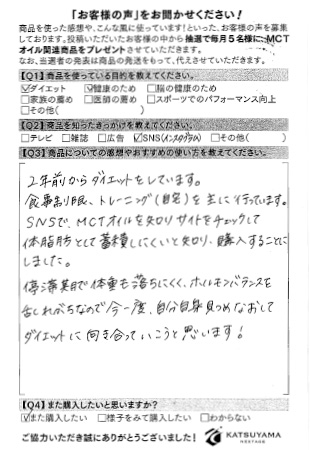 「お客様の声」をお聞かせください！
商品を使った感想や、こんな風に使っています！といった、お客様の声を募集
しております。投稿いただいたお客様の中から抽選で毎月5名様に、MCT
オイル関連商品をプレゼントさせていただきます。
なお、当選者の発表は商品の発送をもって、代えさせていただきます。
【Q1】商品を使っている目的を教えてください。
☑ダイエット ☑健康のため □脳の健康のため
□家族の薦め □医師の薦め □スポーツでのパフォーマンス向上
□その他( )
【Q2】商品を知ったきっかけを教えてください。
□テレビ □雑誌 □広告 ☑SNS(インスタグラム) □その他( )
【Q3】商品についての感想やおすすめの使い方を教えてください。
2年前からダイエットをしています。
食事制限、トレーニング(自宅)を主に行っています。
SNSで、MCTオイルを知りサイトをチェックして
体脂肪として蓄積しにくいと知り、購入することに
しました。
停滞期で体重も落ちにくく、ホルモンバランスを
乱しがちなので今一度、自分自身見つめなおして
ダイエットに向き合っていこうと思います！
【Q4】また購入したいと思いますか？
☑また購入したい □様子をみて購入したい □わからない
ご協力いただき誠にありがとうございました！
KATSUYAMA
HERITAGE